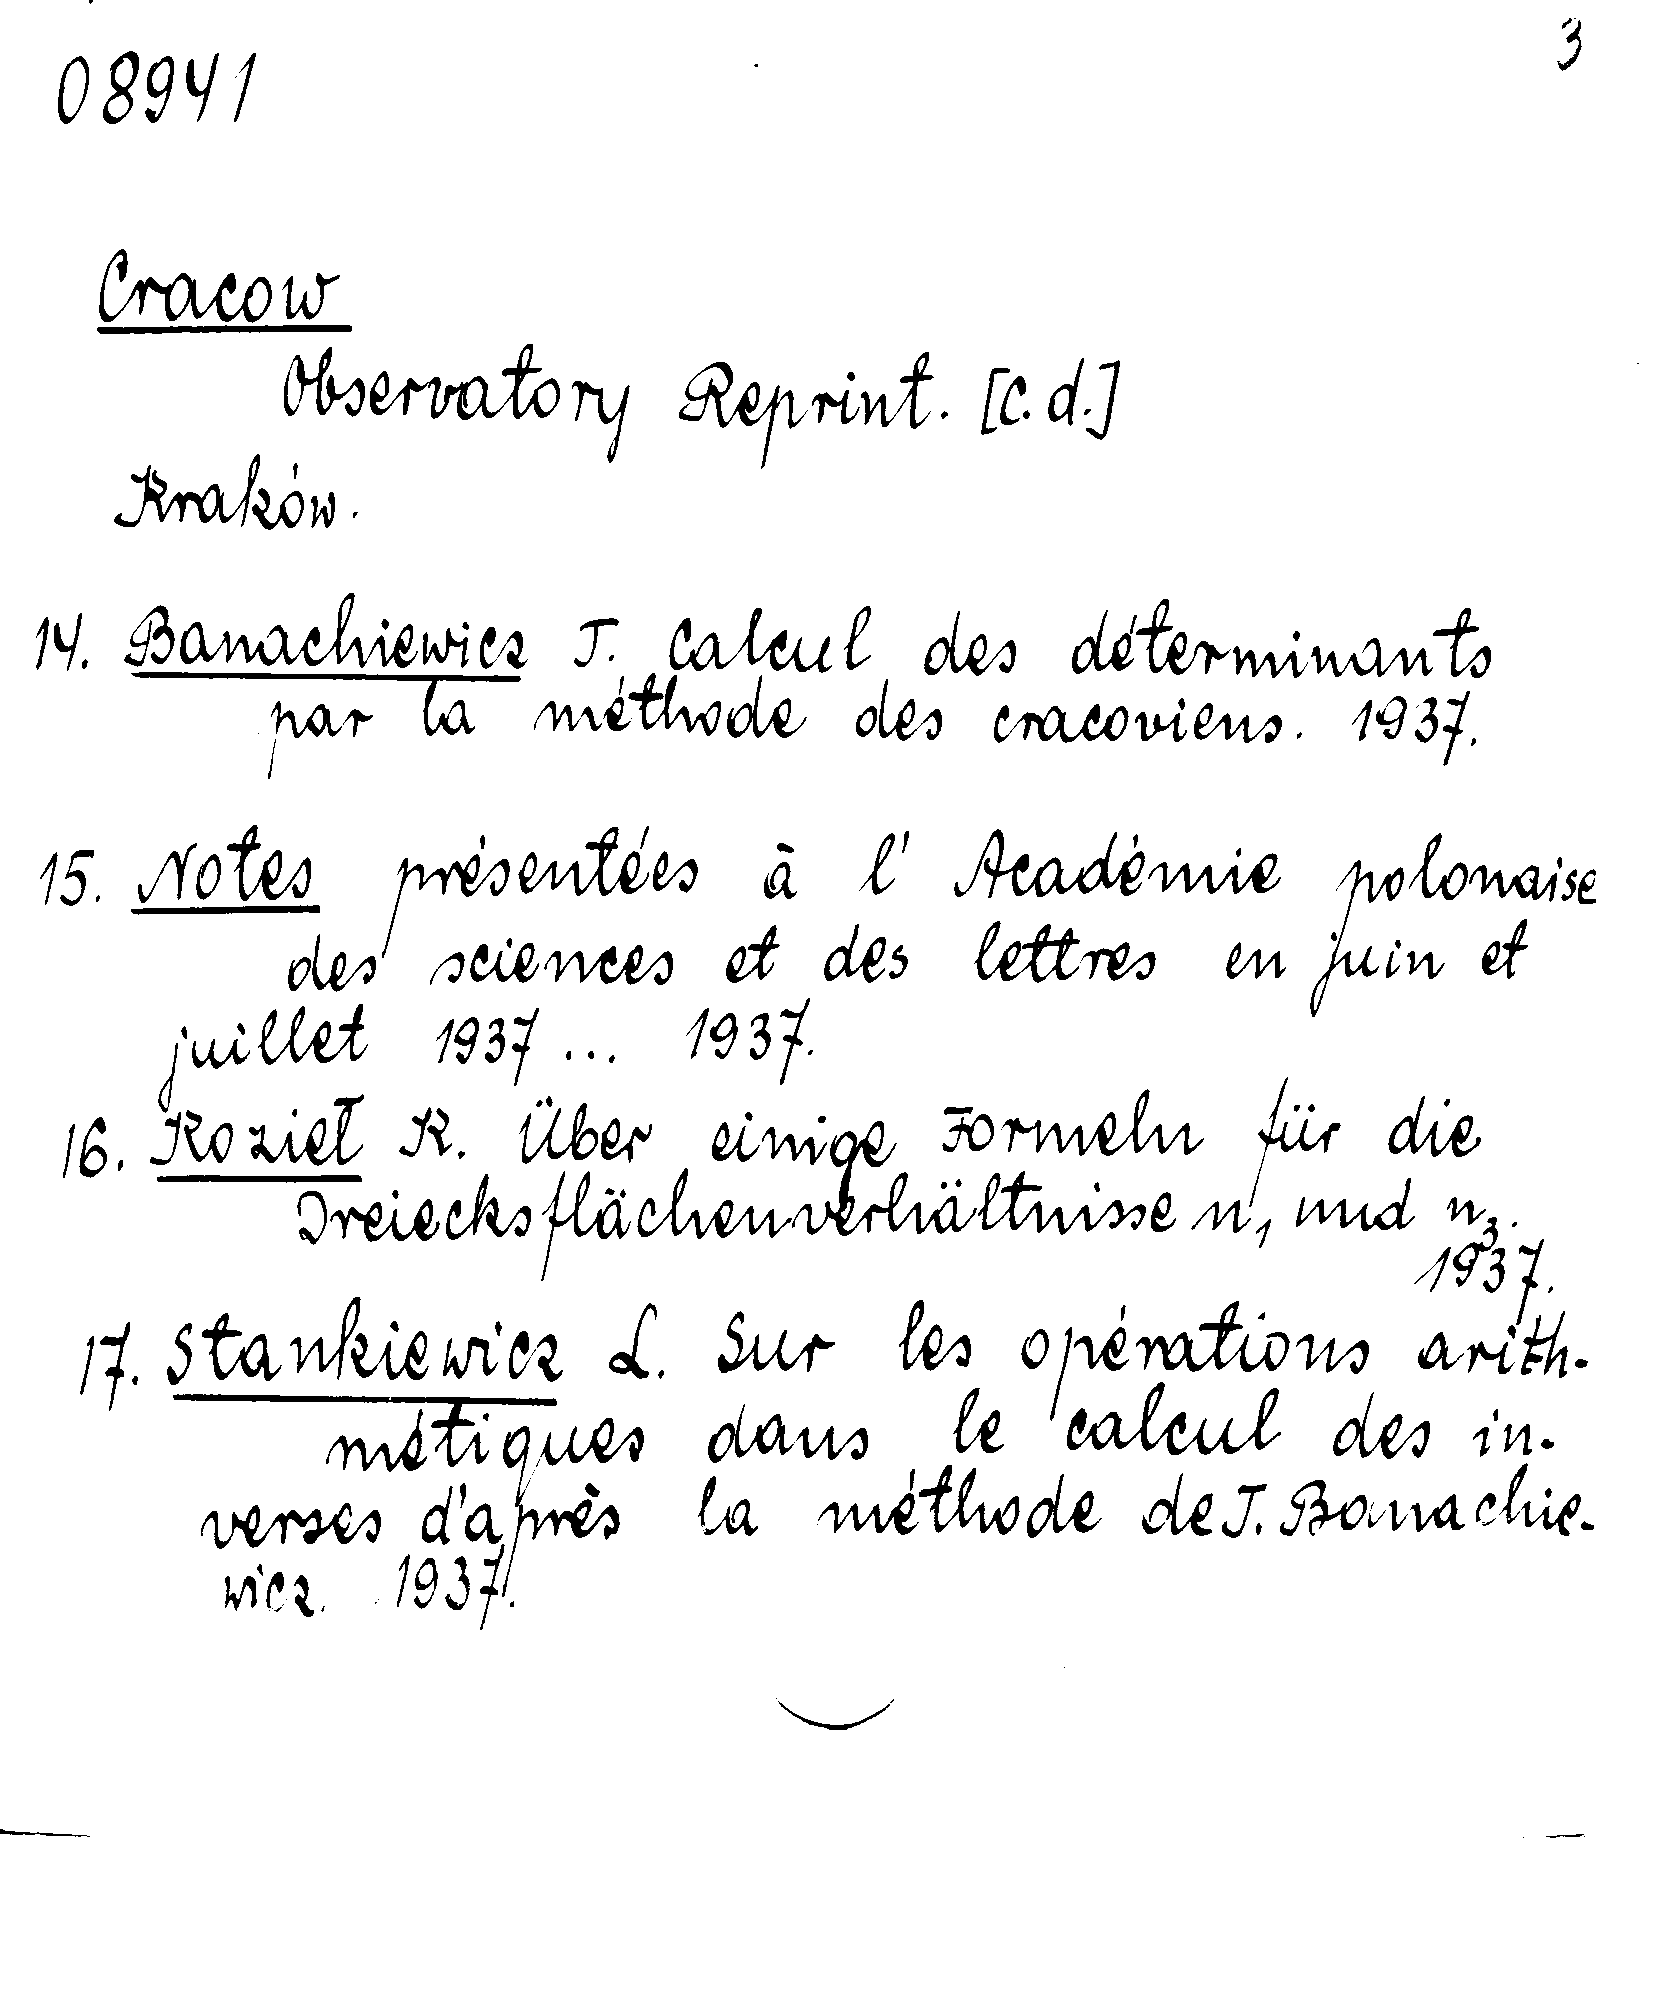 3
08941
Cracow
Observatory Reprint. [C.d.]
Kraków.
14. Banachiewicz T. Calcul des déterminants
par la méthode des cracoviens. 1937.
15. Notes présentées à l' Académie polonaise
des sciences et des lettres en juin et
juillet 1937... 1937.
16. Kozieł K. Über einige Formeln für die
Dreiecksflächenverhältnisse n₁ und n₃.
1937.
17. Stankiewicz L. Sur les opérations arith-
métiques dans le calcul des in-
verses d'après la méthode de T. Banachie-
wicz. 1937.